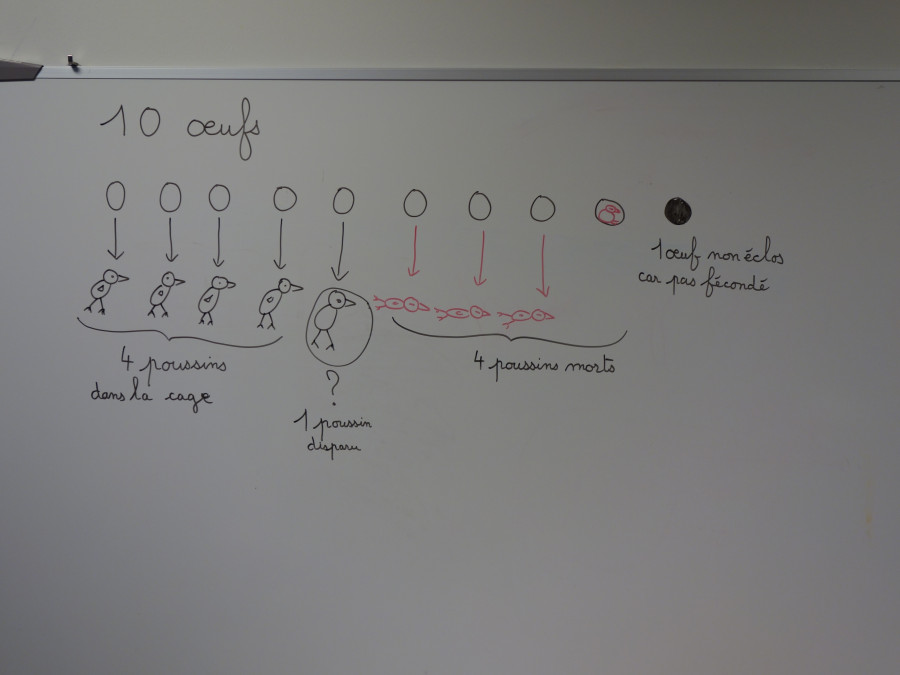 10 œufs
1 œuf non éclos
car pas fécondé
4 poussins
dans la cage
4 poussins morts
?
1 poussin
disparu